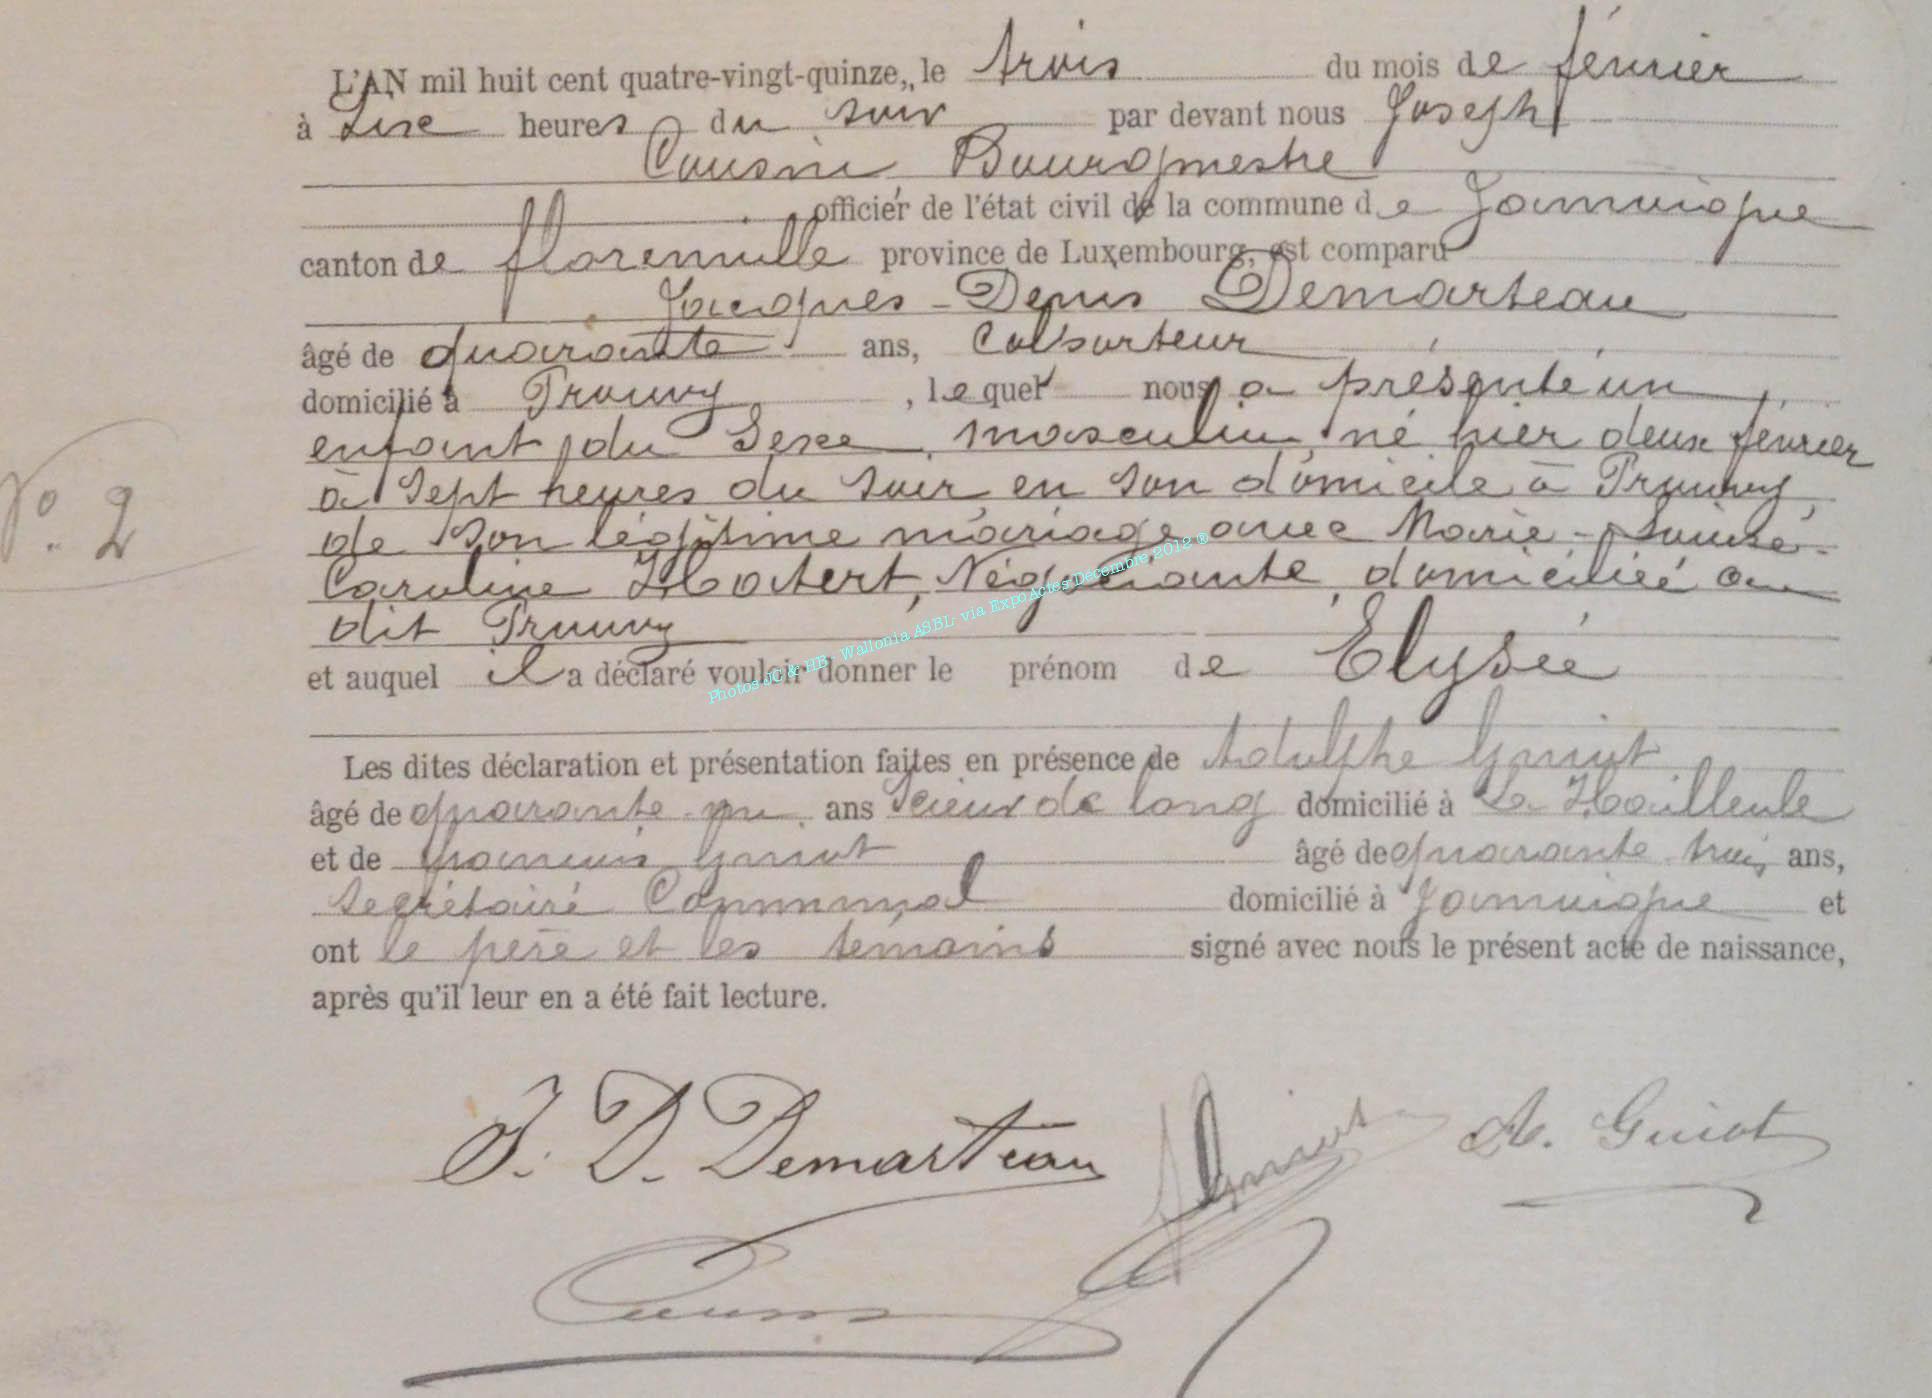 L'AN mil huit cent quatre-vingt-quinze, le trois du mois de février
à Six heures du soir par devant nous Joseph
Cousin Bourgmestre
officier de l'état civil de la commune de Jamoigne
canton de florenville province de Luxembourg, est comparu
Jacques-Denis Demarteau
âgé de quarante ans, Colporteur
domicilié à Prouvy, lequel nous a présenté un
enfant du Sexe masculin, né hier deux février
à Sept heures du soir en son domicile à Prouvy,
de son légitime mariage avec Marie-Louise-
Caroline Habert, Négociante, domiciliée au
dit Prouvy
et auquel il a déclaré vouloir donner le prénom de Elysée
Les dites déclaration et présentation faites en présence de Adolphe Guiot
âgé de quarante-un ans Scieur de long domicilié à La Hailleule
et de françois Guiot âgé de quarante-trois ans,
Secrétaire Communal domicilié à Jamoigne et
ont le père et les témoins signé avec nous le présent acte de naissance,
après qu'il leur en a été fait lecture.
N° 2
J. D. Demarteau Guiot A. Guiot
Cousin
Photos JC & HB - Wallonia ASBL via ExpoActes Décembre 2012 ®